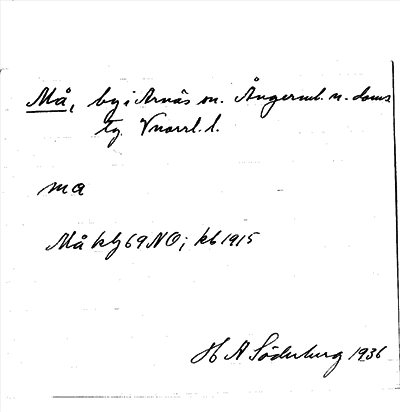 Må, by i Arnäs sn. Ångerml. n. doms
tg. Vnorrl. l.
ma
Må kbl 69 NO; kb 1915
H A Söderburg 1936